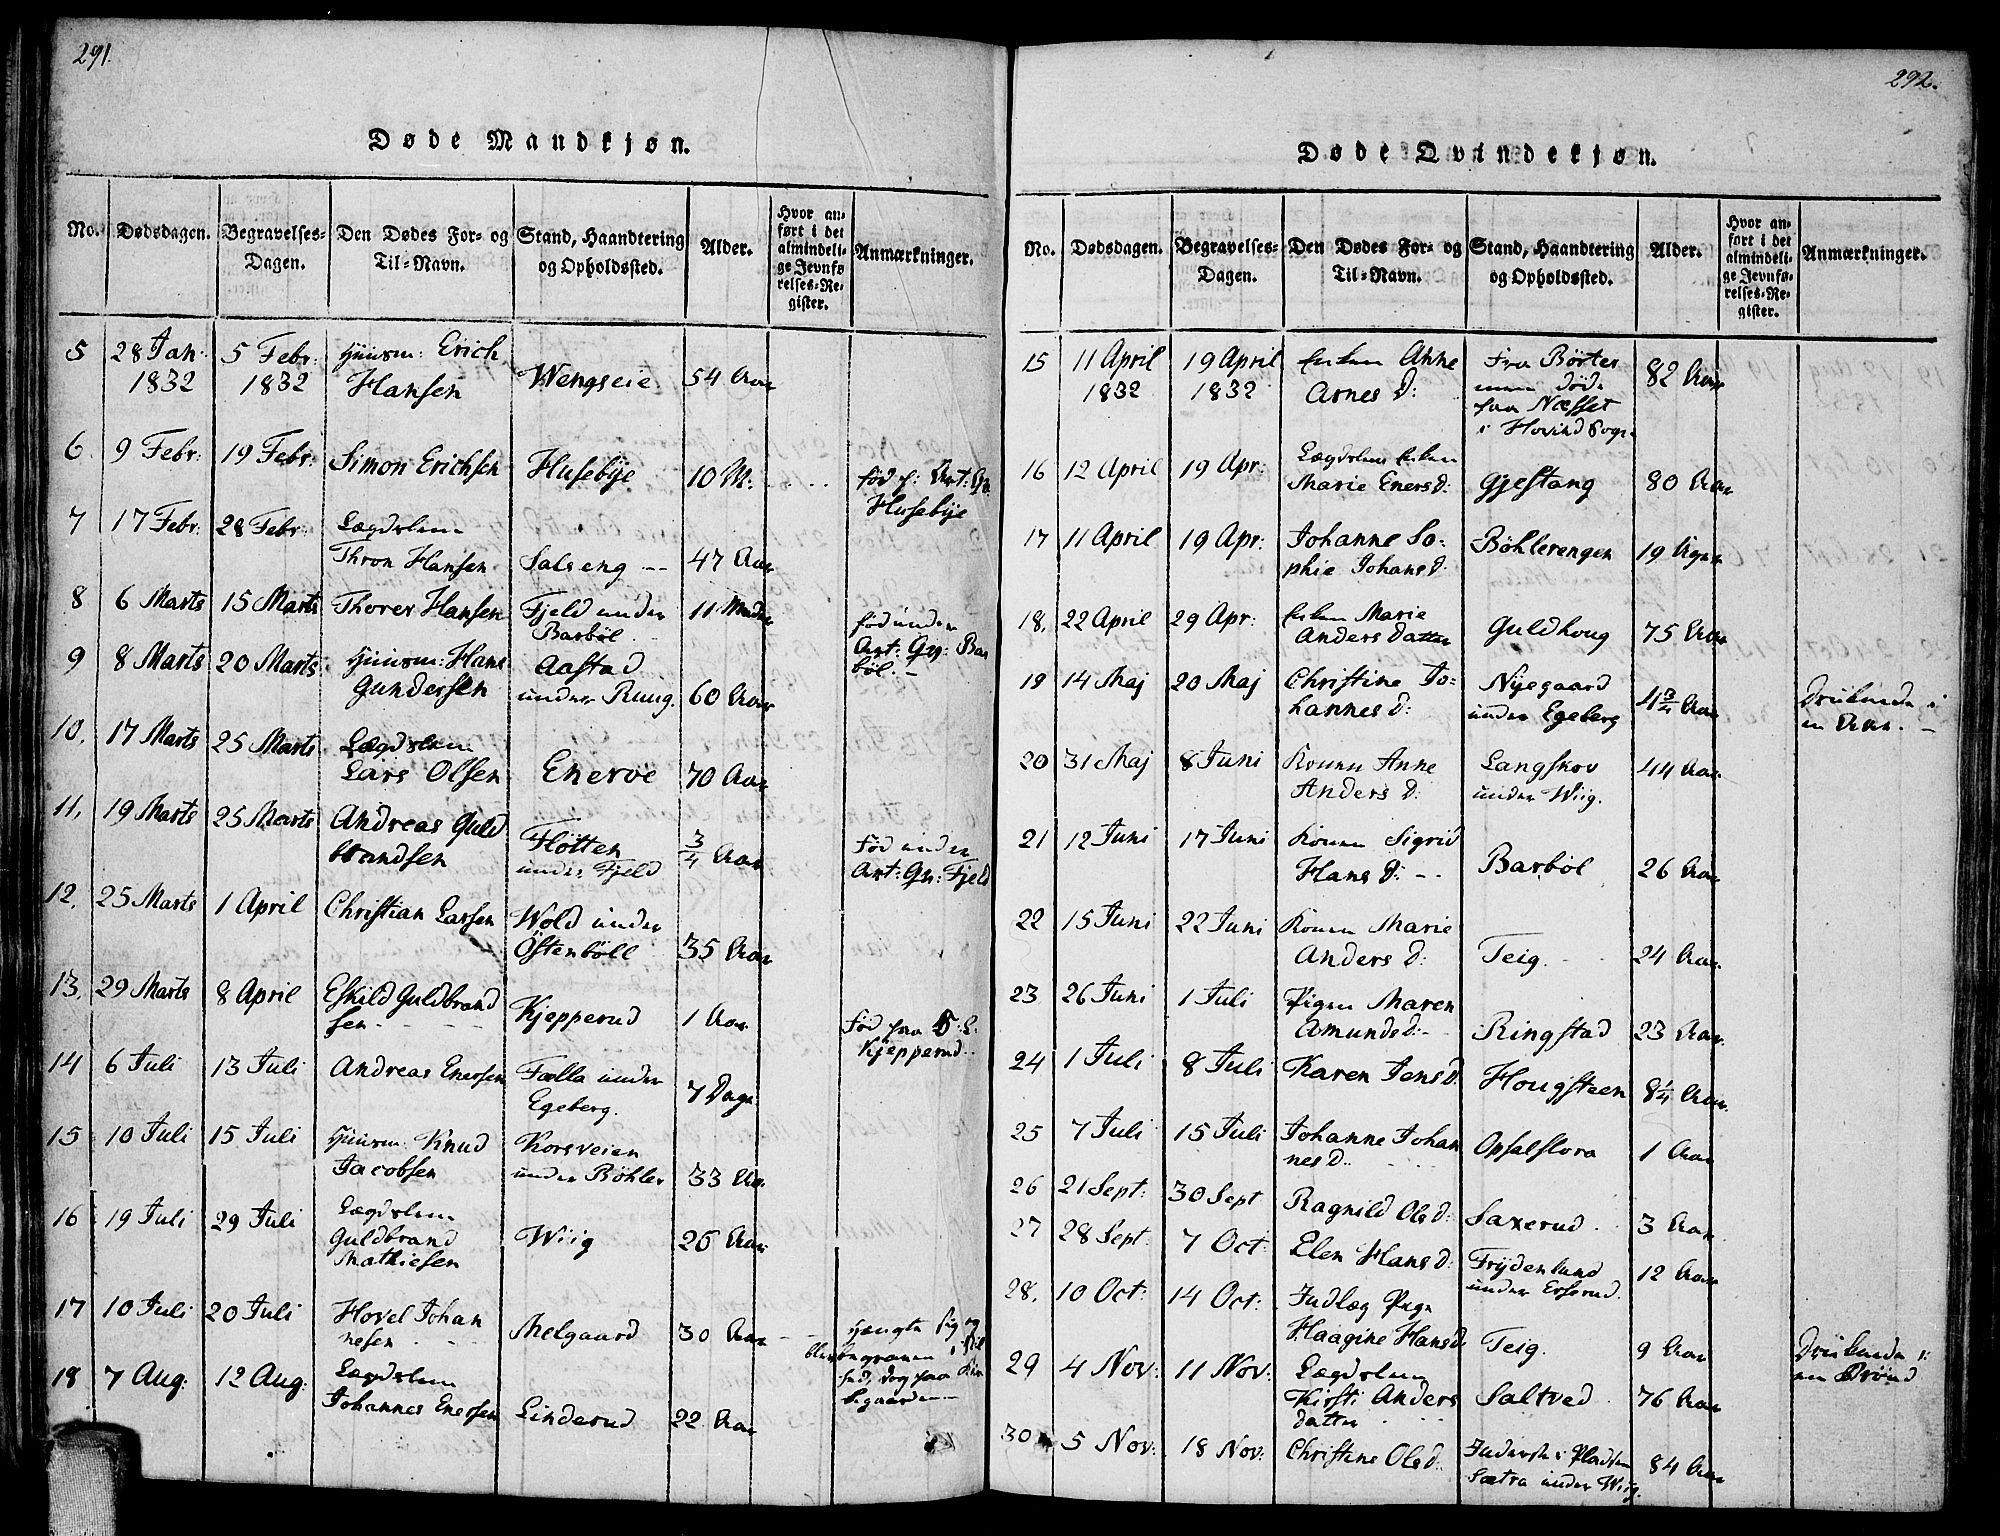 291.
Døde Mandkjøn.
No. Dødsdagen. Begravelses-Dagen. Den Dødes For- og Til-Navn. Stand, Haandtering og Opholdssted. Alder. Hvor anført i det almindelige Jevnførelses-Register. Anmærkninger.
5 28 Jan: 1832 5 Febr: 1832 Huusm: Erich Hansen Wengseie 54 Aar
6. 9 Febr: 19 Febr: Simon Erichsen Husebye 10 M: fød
Husebye
7 17 Febr: 28 Febr: Lægdslem Thron Hansen Salseng 47 Aar
8 6 Marts 15 Marts Thorer Hansen Fjeld under Barbøl 11 fød under Art: Gr: Barbøl.
9 8 Marts 20 Marts Huusm: Hans Gundersen Aastad under Ruug. 60 Aar
10. 17 Marts 25 Marts Lægdslem Lars Olsen Enerve 70 Aar
11. 19 Marts 25 Marts Andreas Guldbrandsen Flotten under Fjeld 3/4 Aar Fød under Art: Gr: Fjeld
12. 25 Marts 1 April Christian Larsen Wold under Østenbøll 35 Aar
13. 29 Marts 8 April Eskild Guldbrandsen Kjepperud 1 Aar fød paa
Kjepperud.
14 6 Juli 13 Juli Andreas Enersen Fælla under Egeberg. 7 Dage
15 10 Juli 15 Juli Huusm: Knud Jacobsen Korsveien under Bøhler 33 Aar
16 19 Juli 29 Juli Lægdslem Guldbrand Mathiesen Wiig 26 Aar
17 10 Juli 20 Juli Hovel Johannesen Melgaard 30 Aar hængte sig og blev begraven i
18 7 Aug: 12 Aug: Lægdslem Johannes Enersen Linderud 22 Aar
292.
Døde Qvindekjøn.
No. Dødsdagen. Begravelses-Dagen. Den Dødes For- og Til-Navn. Stand, Haandtering og Opholdssted. Alder. Hvor anført i det almindelige Jevnførelses-Register. Anmærkninger.
15 11 April 1832 19 April 1832 Enken Anne Arnes d: Fra Børter men døde paa Næsset i Hovind Sogn 82 Aar
16 12 April 19 Apr: Lægdslem Enken Marie Eners d: Gjestang 80 Aar
17 11 April 19 Apr: Johanne Sophie Johans d: Bøhlerengen 19 Uger
18. 22 April 29 Apr: Enken Marie Anders datter Guldhoug 75 Aar
19 14 Maj 20 Maj Christine Johannes d: Nyegaard under Egeberg 4 3/4 Aar Druknede i en Aae.
20 31 Maj 8 Juni Konen Anne Anders d: Langskov under Wiig. 44 Aar
21 12 Juni 17 Juni Konen Sigrid Hans d: Barbøl 26 Aar
22 15 Juni 22 Juni Konen Marie Anders d: Teig. 24 Aar
23 26 Juni 1 Juli Pigen Maren Amunds d: Ringstad 23 Aar
24 1 Juli 8 Juli Karen Jens d. Hougsteen 8 1/4 Aar
25 7 Juli 15 Juli Johanne Johannes d. Opsalflora 1 Aar
26 21 Sept: 30 Sept Ragnild Ols d: Saxerud 3 Aar
27 28 Sept: 7 Oct: Elen Hans d: Frydenlund under Erserud. 12 Aar
28. 10 Oct: 14 Oct: Indlæg Pige Haagine Hans d. Teig. 9 Aar Druknede i en Brønd
29 4 Nov: 11 Nov: Lægdslem Kirsti Anders datter Saltved 76 Aar
30 5 Nov: 18 Nov: Christine Ols d. Inderste i Pladsen Sætra under Wiig 84 Aar